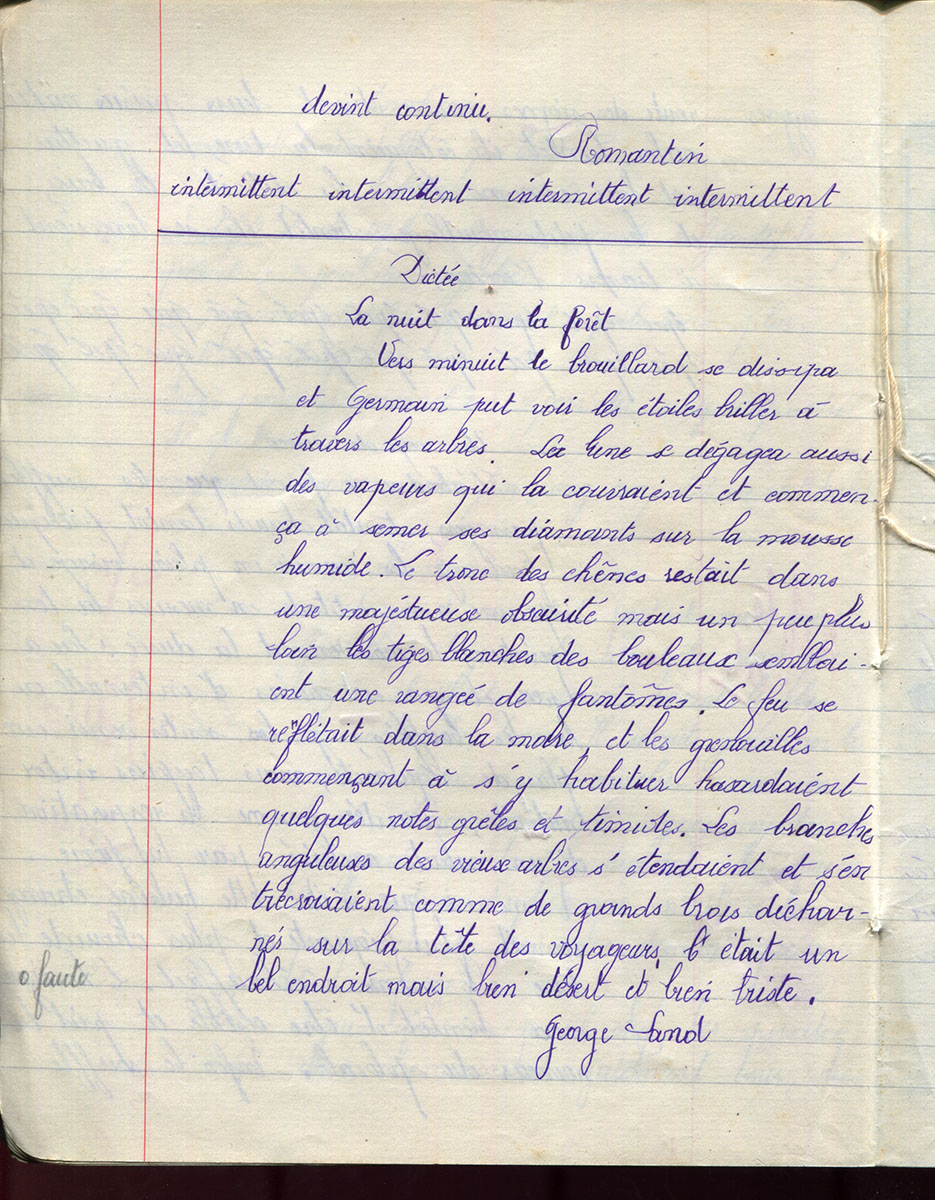 devint continu.
Romantin
intermittent intermittent intermittent intermittent
Dictée
La nuit dans la forêt
Vers minuit le brouillard se dissipa
et Germain put voir les étoiles briller à
travers les arbres. La lune se dégagea aussi
des vapeurs qui la couvraient et commen-
ça à semer ses diamants sur la mousse
humide. Le tronc des chênes restait dans
une majéstueuse obscurité mais un peu plus
loin les tiges blanches des bouleaux semblai-
ent une rangée de fantômes. Le feu se
reflétait dans la mare, et les grenouilles
commençant à s'y habituer hasardaient
quelques notes grêles et timides. Les branches
anguleuses des vieux arbres s'étendaient et s'en
trecroisaient comme de grands bras déchar-
nés sur la tête des voyageurs, C'était un
bel endroit mais bien désert et bien triste.
o faute
George Sand